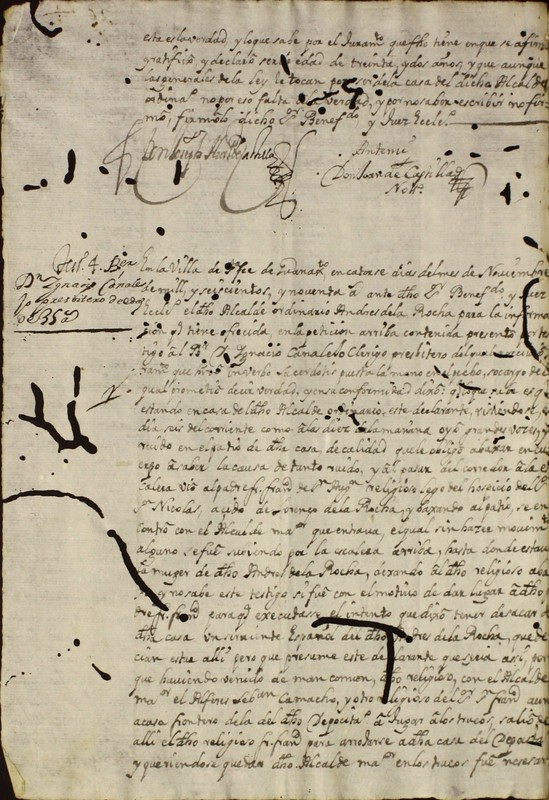 esta es la verdad, y lo que sabe por el Juramto que fho tiene en que se afirmó
ratificó, y declaró ser de edad de treinta, y dos años, y que aunque
las generales de la ley le tocan por ser de la casa del dicha Alcalde
ordina no por eso falta a la verdad, y por no saber escribir no fir
mó, firmolo dicho Sr Benefdo y Juez Eccle
Ante mi
Don Juan de Castilla
Nott
Test. 4. Ber
Dn Ignacio Canale
jo presbitero de edad
de 35 a
En la Villa de Sta Fee de Guanax, en catorse dias del mes de Noviembre
de mill, y seiscientos, y noventa a ante dho Sr Benefdo y Juez
Eccle el dho Alcalde ordinario Andres de la Rocha para la informa
sion q tiene ofrecida, en la peticion arriba contenida presentó por tes
tigo al Br D. Ignacio Canalejo Clerigo presbitero del qual
que hizo in Verbo Sacerdotis puesta la mano en el pecho, so cargo del
qual prometió decir verdad, y en su conformidad dixo: q lo que sabe es q
estando en casa del dho Alcalde ordinario, este declarante,
dia seis del corriente como a las diez de la mañana oyó grandes voces, y
ruido en el patio de dha casa de calidad que le obligó a baxar
a saber la causa de tanto ruido, y al pasar del corredor a la es
calera vio al padre fr. franco de Sn Augn religioso lego del hospicio del Sr
Sn Nicolas, asido de Lorenzo de la Rocha, y baxando al patio, se en
contró con el Alcalde maor que entrava, el qual sin hazer movimto
alguno se fué suviendo por la escalera arriba, hasta donde estava
la muger de dho Andres de la Rocha, dexando al dho religioso
y no sabe este testigo si fué con el motivo de dar lugar a dho
dre fr. frando para q executasse el intento que dixo tener de sacar de
dha casa un sirviente Español del dho Andres de la Rocha, que de
cian estar alli pero que presume este declarante que seria asi, por
que haviendo venido de man comun, dho religioso, con el Alcalde
maor el Alferes Seban Camacho, y otro religioso del Sr Sn frando
a casa frontero de la del dho a Jugar a los trucos, salió de
alli el dho religioso fr. frando para arrojarse a dha casa del
y queriendose quedar dho Alcalde maor en los trucos fué nesesar